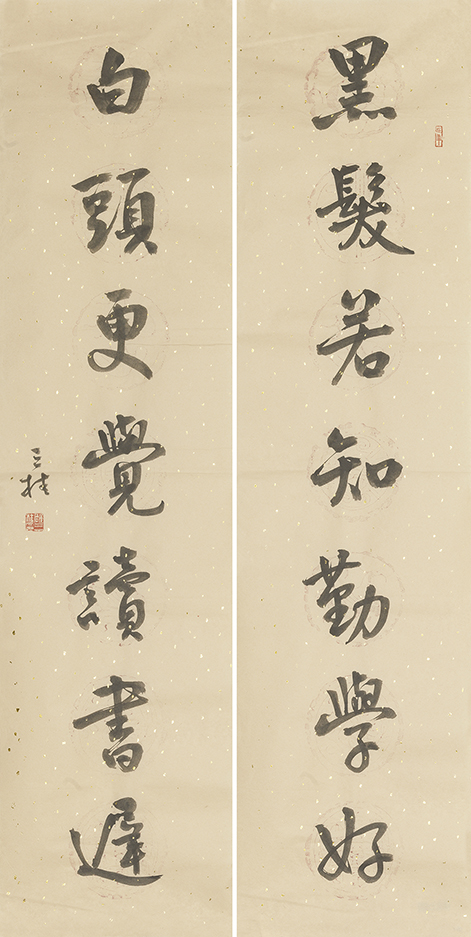 黑髮若知勤學好
白頭更覺讀書遲
三桂